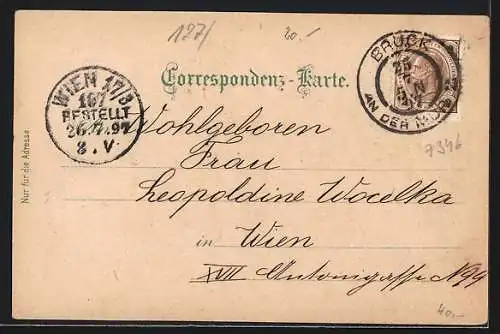 127/
20.-
Correspondenz-Karte.
BRUCK
AN DER MUR
WIEN 17/3
107
BESTELLT
26.7.97
8.V
7346
Nur für die Adresse.
Wohlgeboren
Frau
Leopoldine Wocelka
in Wien
XVII Antonigasse No 99
40.-